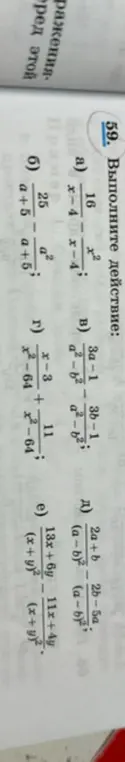 ражения.
ред этой
59. Выполните действие:
а) \frac{16}{x-4} - \frac{x^2}{x-4}; в) \frac{3a-1}{a^2-b^2} - \frac{3b-1}{a^2-b^2}; д) \frac{2a+b}{(a-b)^2} - \frac{2b-5a}{(a-b)^2};
б) \frac{25}{a+5} - \frac{a^2}{a+5}; г) \frac{x-3}{x^2-64} + \frac{11}{x^2-64}; е) \frac{13x+6y}{(x+y)^2} - \frac{11x+4y}{(x+y)^2}.